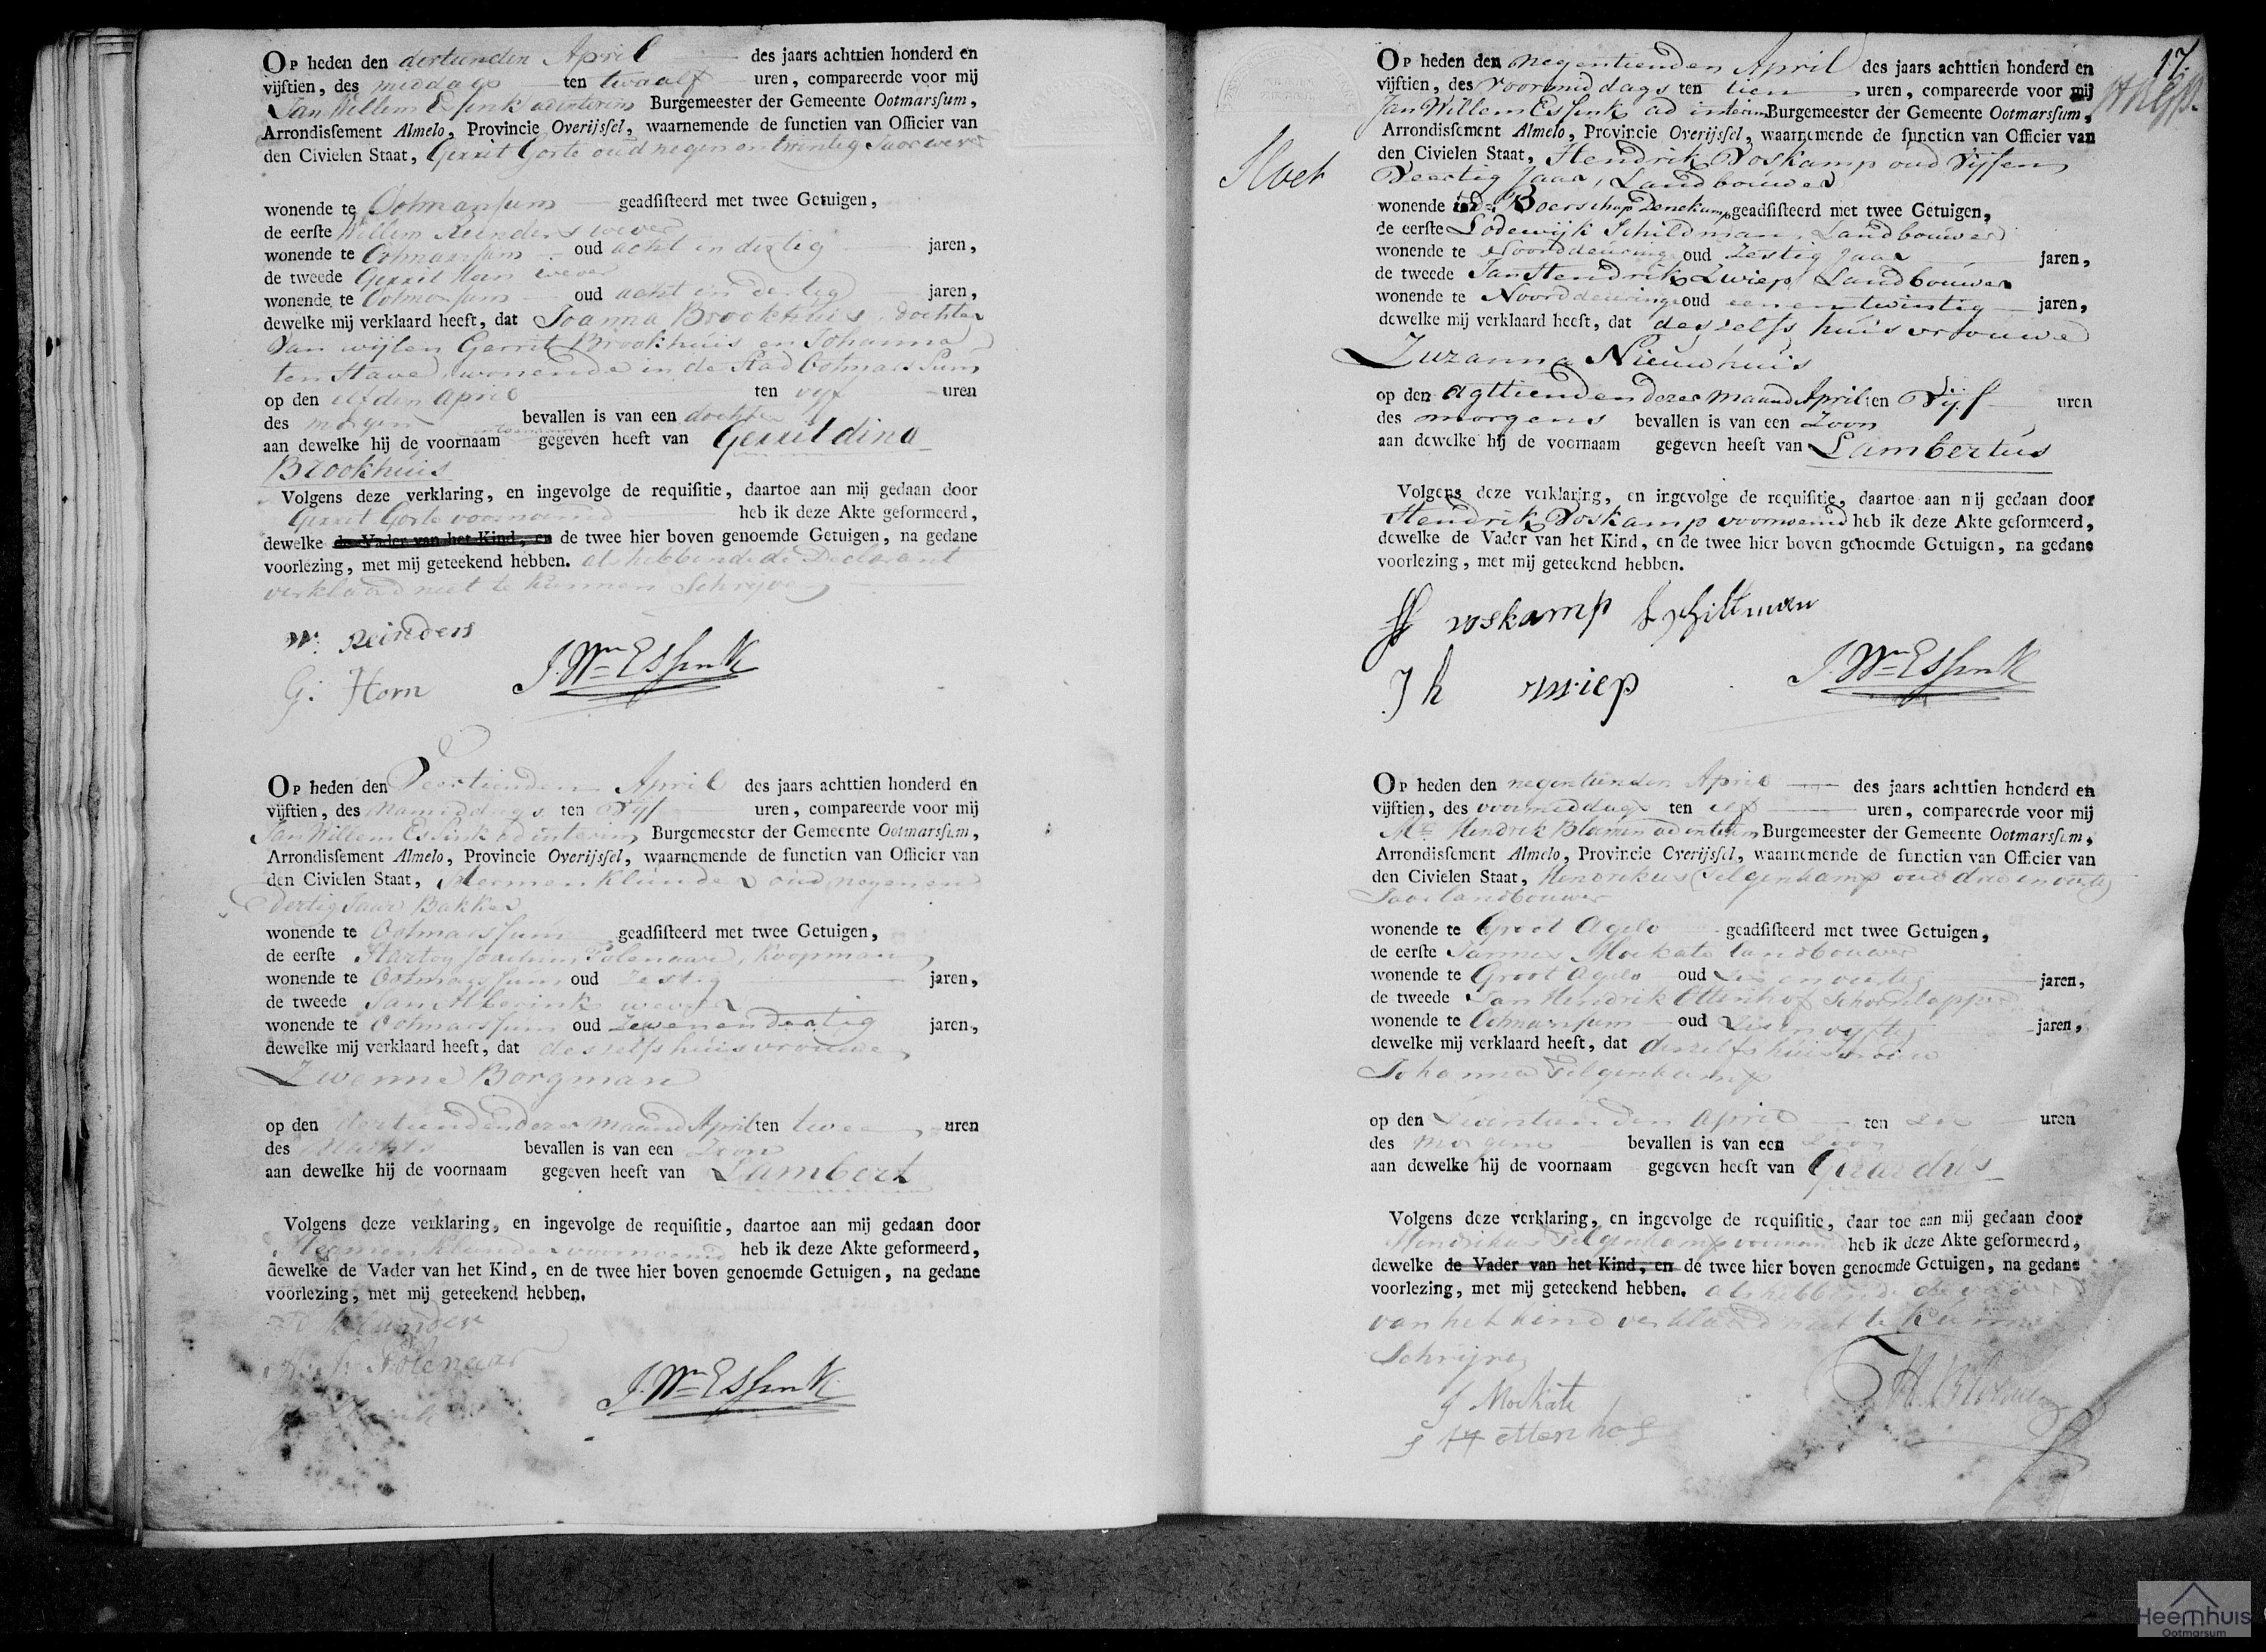 Op heden den dertienden April des jaars achttien honderd en
vijftien, des middags ten twaalf uren, compareerde voor mij
Jan Willem Essink ad interim Burgemeester der Gemeente Ootmarssum,
Arrondissement Almelo, Provincie Overijssel, waarnemende de functien van Officier van
den Civielen Staat, Gerrit Gorte oud negen en twintig Jaar wever
wonende te Ootmarssum geadsisteerd met twee Getuigen,
de eerste Willem Reinders wever
wonende te Ootmarssum oud acht en dertig jaren,
de tweede Gerrit Horn wever
wonende te Ootmarssum oud acht en dertig jaren,
dewelke mij verklaard heeft, dat Joanna Brookhuis dochter
van wijlen Gerrit Brookhuis en Johanna
ten Stave, wonende in de Stad Ootmarssum
op den elfden April ten vyf uren
des morgens bevallen is van een dochter
aan dewelke hij de voornaam gegeven heeft van Gerritdina
Brookhuis
Volgens deze verklaring, en ingevolge de requisitie, daartoe aan mij gedaan door
Gerrit Gorte voornoemd heb ik deze Akte geformeerd,
dewelke de Vader van het Kind, en de twee hier boven genoemde Getuigen, na gedane
voorlezing, met mij geteekend hebben. als hebbende de Declarant
verklaard niet te kunnen Schryven
W. Reinders
G. Horn J. Wm Essink
Op heden den Veertienden April des jaars achttien honderd en
vijftien, des Namiddags ten Vyf uren, compareerde voor mij
Jan Willem Essink ad interim Burgemeester der Gemeente Ootmarssum,
Arrondissement Almelo, Provincie Overijssel, waarnemende de functien van Officier van
den Civielen Staat, Hermen Klunder oud negen en
dertig Jaar Bakker
wonende te Ootmarssum geadsisteerd met twee Getuigen,
de eerste Hartog Joachim Polenaar, Koopman
wonende te Ootmarssum oud Zestig jaren,
de tweede Jan Alberink wever
wonende te Ootmarssum oud Zeven en Dertig jaren,
dewelke mij verklaard heeft, dat deszelfs huisvrouwe
Zwenne Borgman
op den dertienden dezer maand April ten twee uren
des Nachts bevallen is van een Zoon
aan dewelke hij de voornaam gegeven heeft van Lambert
Volgens deze verklaring, en ingevolge de requisitie, daartoe aan mij gedaan door
Hermen Klunder voornoemd heb ik deze Akte geformeerd,
dewelke de Vader van het Kind, en de twee hier boven genoemde Getuigen, na gedane
voorlezing, met mij geteekend hebben.
Klunder
H. J. Polenaar
J. Wm Essink
17
Op heden den Negentienden April des jaars achttien honderd en
vijftien, des Voormiddags ten tien uren, compareerde voor mij
Jan Willem Essink ad interim Burgemeester der Gemeente Ootmarssum,
Arrondissement Almelo, Provincie Overijssel, waarnemende de functien van Officier van
den Civielen Staat, Hendrik Voskamp oud Vyf en
Veertig Jaar, Landbouwer
wonende in de Boerschap Denekamp geadsisteerd met twee Getuigen,
de eerste Lodewijk Schildman, Landbouwer
wonende te Noorddeuringe oud Zestig Jaar jaren,
de tweede Jan Hendrik Zwiep Landbouwer
wonende te Noorddeuringe oud een en twintig jaren,
dewelke mij verklaard heeft, dat deszelfs huisvrouwe
Zuzanna Nieuwhuis
op den Agttienden dezer maand April ten Vijf uren
des morgens bevallen is van een Zoon
aan dewelke hij de voornaam gegeven heeft van Lambertus
Volgens deze verklaring, en ingevolge de requisitie, daartoe aan mij gedaan door
Hendrik Voskamp voornoemd heb ik deze Akte geformeerd,
dewelke de Vader van het Kind, en de twee hier boven genoemde Getuigen, na gedane
voorlezing, met mij geteekend hebben.
H voskamp L schiltman
J h zwiep J. Wm Essink
Op heden den negentienden April des jaars achttien honderd en
vijftien, des voormiddags ten elf uren, compareerde voor mij
Mr Hendrik Bloemen ad interim Burgemeester der Gemeente Ootmarssum,
Arrondissement Almelo, Provincie Overijssel, waarnemende de functien van Officier van
den Civielen Staat, Hendrikus Tilgenkamp oud drie en veertig
Jaar landbouwer
wonende te Groot Agelo geadsisteerd met twee Getuigen,
de eerste Jannes Moekate landbouwer
wonende te Groot Agelo oud Zes en veertig jaren,
de tweede Jan Hendrik Ottenhof Schoenlapper
wonende te Ootmarssum oud Zes en vyftig jaren,
dewelke mij verklaard heeft, dat deszelfs huisvrouw
Johanna Tilgenkamp
op den Zeventienden April ten Zes uren
des morgens bevallen is van een Zoon
aan dewelke hij de voornaam gegeven heeft van Gerardus
Volgens deze verklaring, en ingevolge de requisitie, daar toe aan mij gedaan door
Hendrikus Tilgenkamp voornoemd heb ik deze Akte geformeerd,
dewelke de Vader van het Kind, en de twee hier boven genoemde Getuigen, na gedane
voorlezing, met mij geteekend hebben. als hebbende de vader
van het kind verklaard niet te kunnen
Schrijven
J Moekate
J H ottenhof H. Bloemen
Heemhuis
Ootmarsum